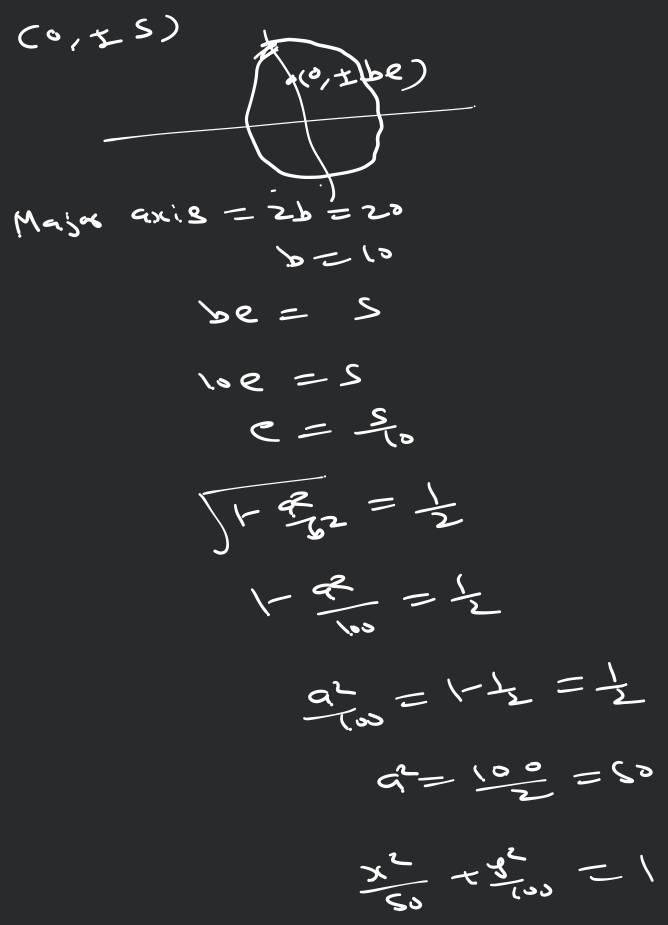 (0, ± 5)
(0, ± be)
Major axis = 2b = 20
b = 10
be = 5
10e = 5
e = 5/10
√(1 - a²/b²) = 1/2
1 - a²/100 = 1/2
a²/100 = 1 - 1/2 = 1/2
a² = 100/2 = 50
x²/50 + y²/100 = 1